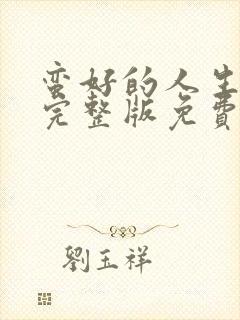 蛮好的人生
完整版免費
劉玉祥